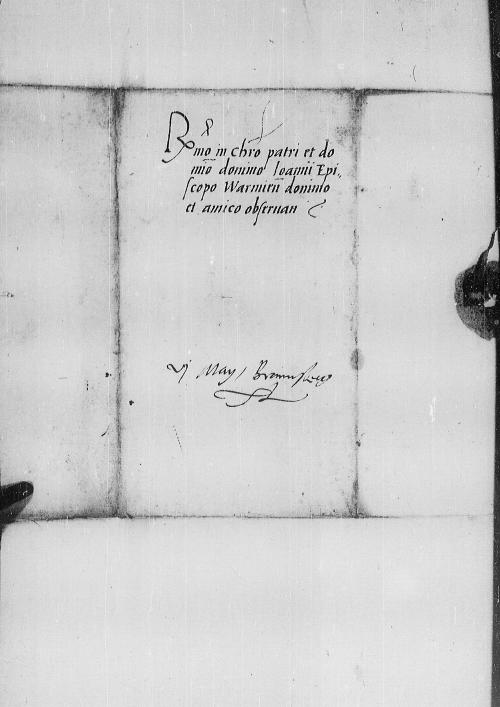 Rmo in Chro patri et do
mino domino Ioanni Epi-
scopo Warmien domino
et amico obseruan
vj May Brawnsberg